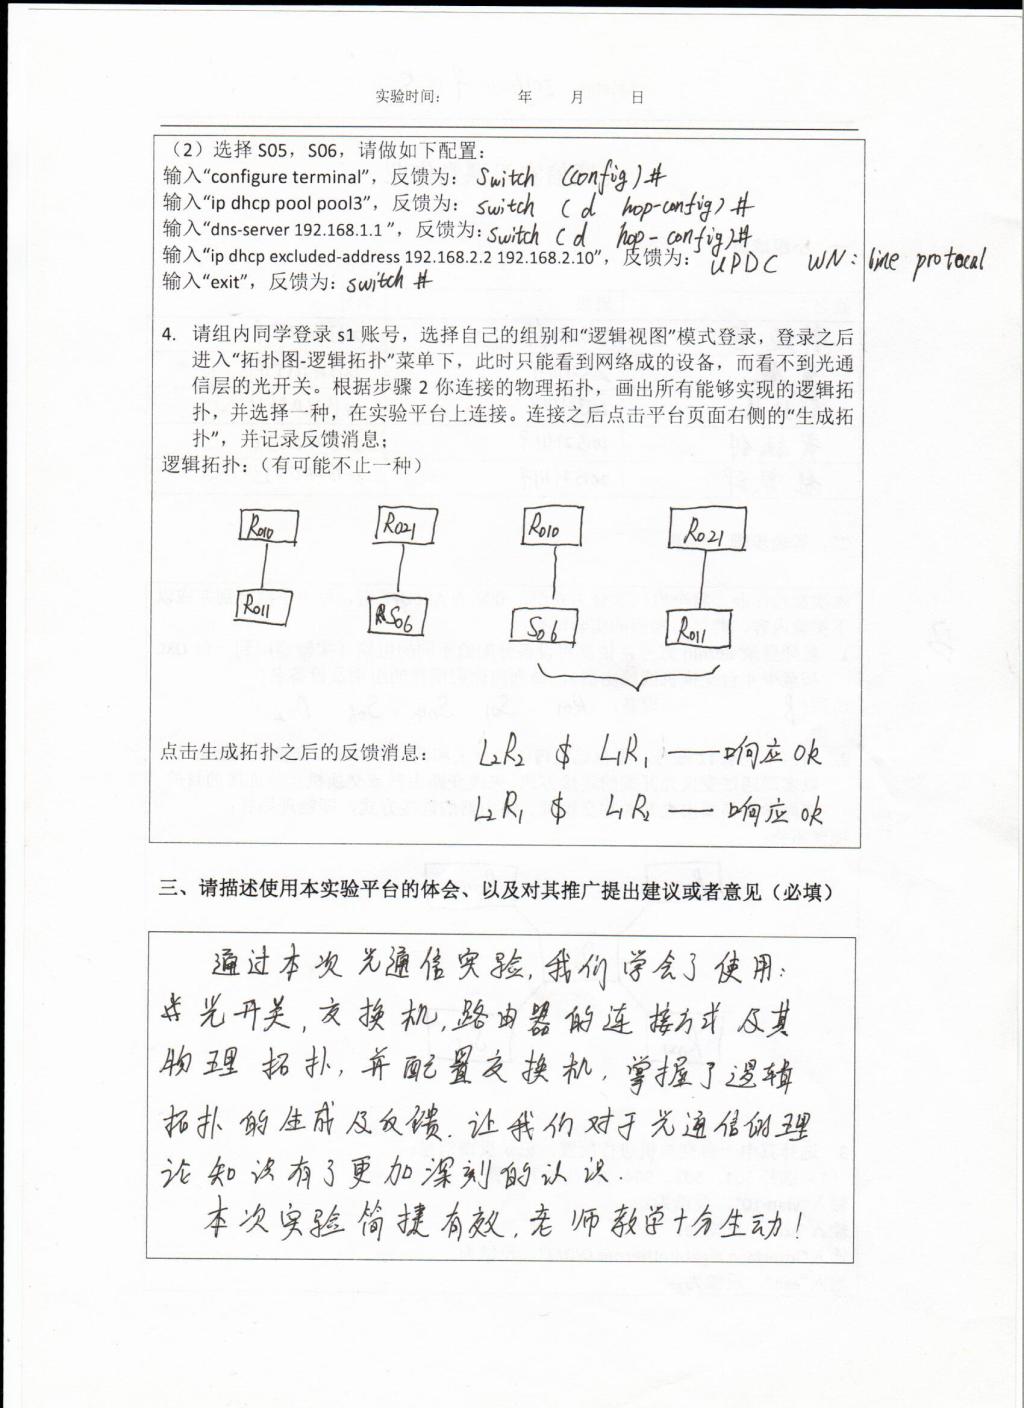 实验时间： 年 月 日
（2）选择 S05，S06，请做如下配置：
输入“configure terminal”，反馈为：Switch (config)#
输入“ip dhcp pool pool3”，反馈为：switch (d hcp-config)#
输入“dns-server 192.168.1.1 ”，反馈为：switch (d hcp-config)#
输入“ip dhcp excluded-address 192.168.2.2 192.168.2.10”，反馈为：UPDC WN: line protocal
输入“exit”，反馈为：switch #
4. 请组内同学登录 s1 账号，选择自己的组别和“逻辑视图”模式登录，登录之后
进入“拓扑图-逻辑拓扑”菜单下，此时只能看到网络成的设备，而看不到光通
信层的光开关。根据步骤 2 你连接的物理拓扑，画出所有能够实现的逻辑拓
扑，并选择一种，在实验平台上连接。连接之后点击平台页面右侧的“生成拓
扑”，并记录反馈消息；
逻辑拓扑：（有可能不止一种）
R010 R021 R010 R021
R011 S06 S06 R011
点击生成拓扑之后的反馈消息： L2R2 $ L1R1 ——响应 ok
L2R1 $ L1R2 —— 响应 ok
三、请描述使用本实验平台的体会、以及对其推广提出建议或者意见（必填）
通过本次光通信实验，我们学会了使用：
光开关，交换机，路由器的连接方式及其
物理拓扑，并配置交换机，掌握了逻辑
拓扑的生成及反馈．让我们对于光通信的理
论知识有了更加深刻的认识．
本次实验简捷有效，老师教学十分生动！